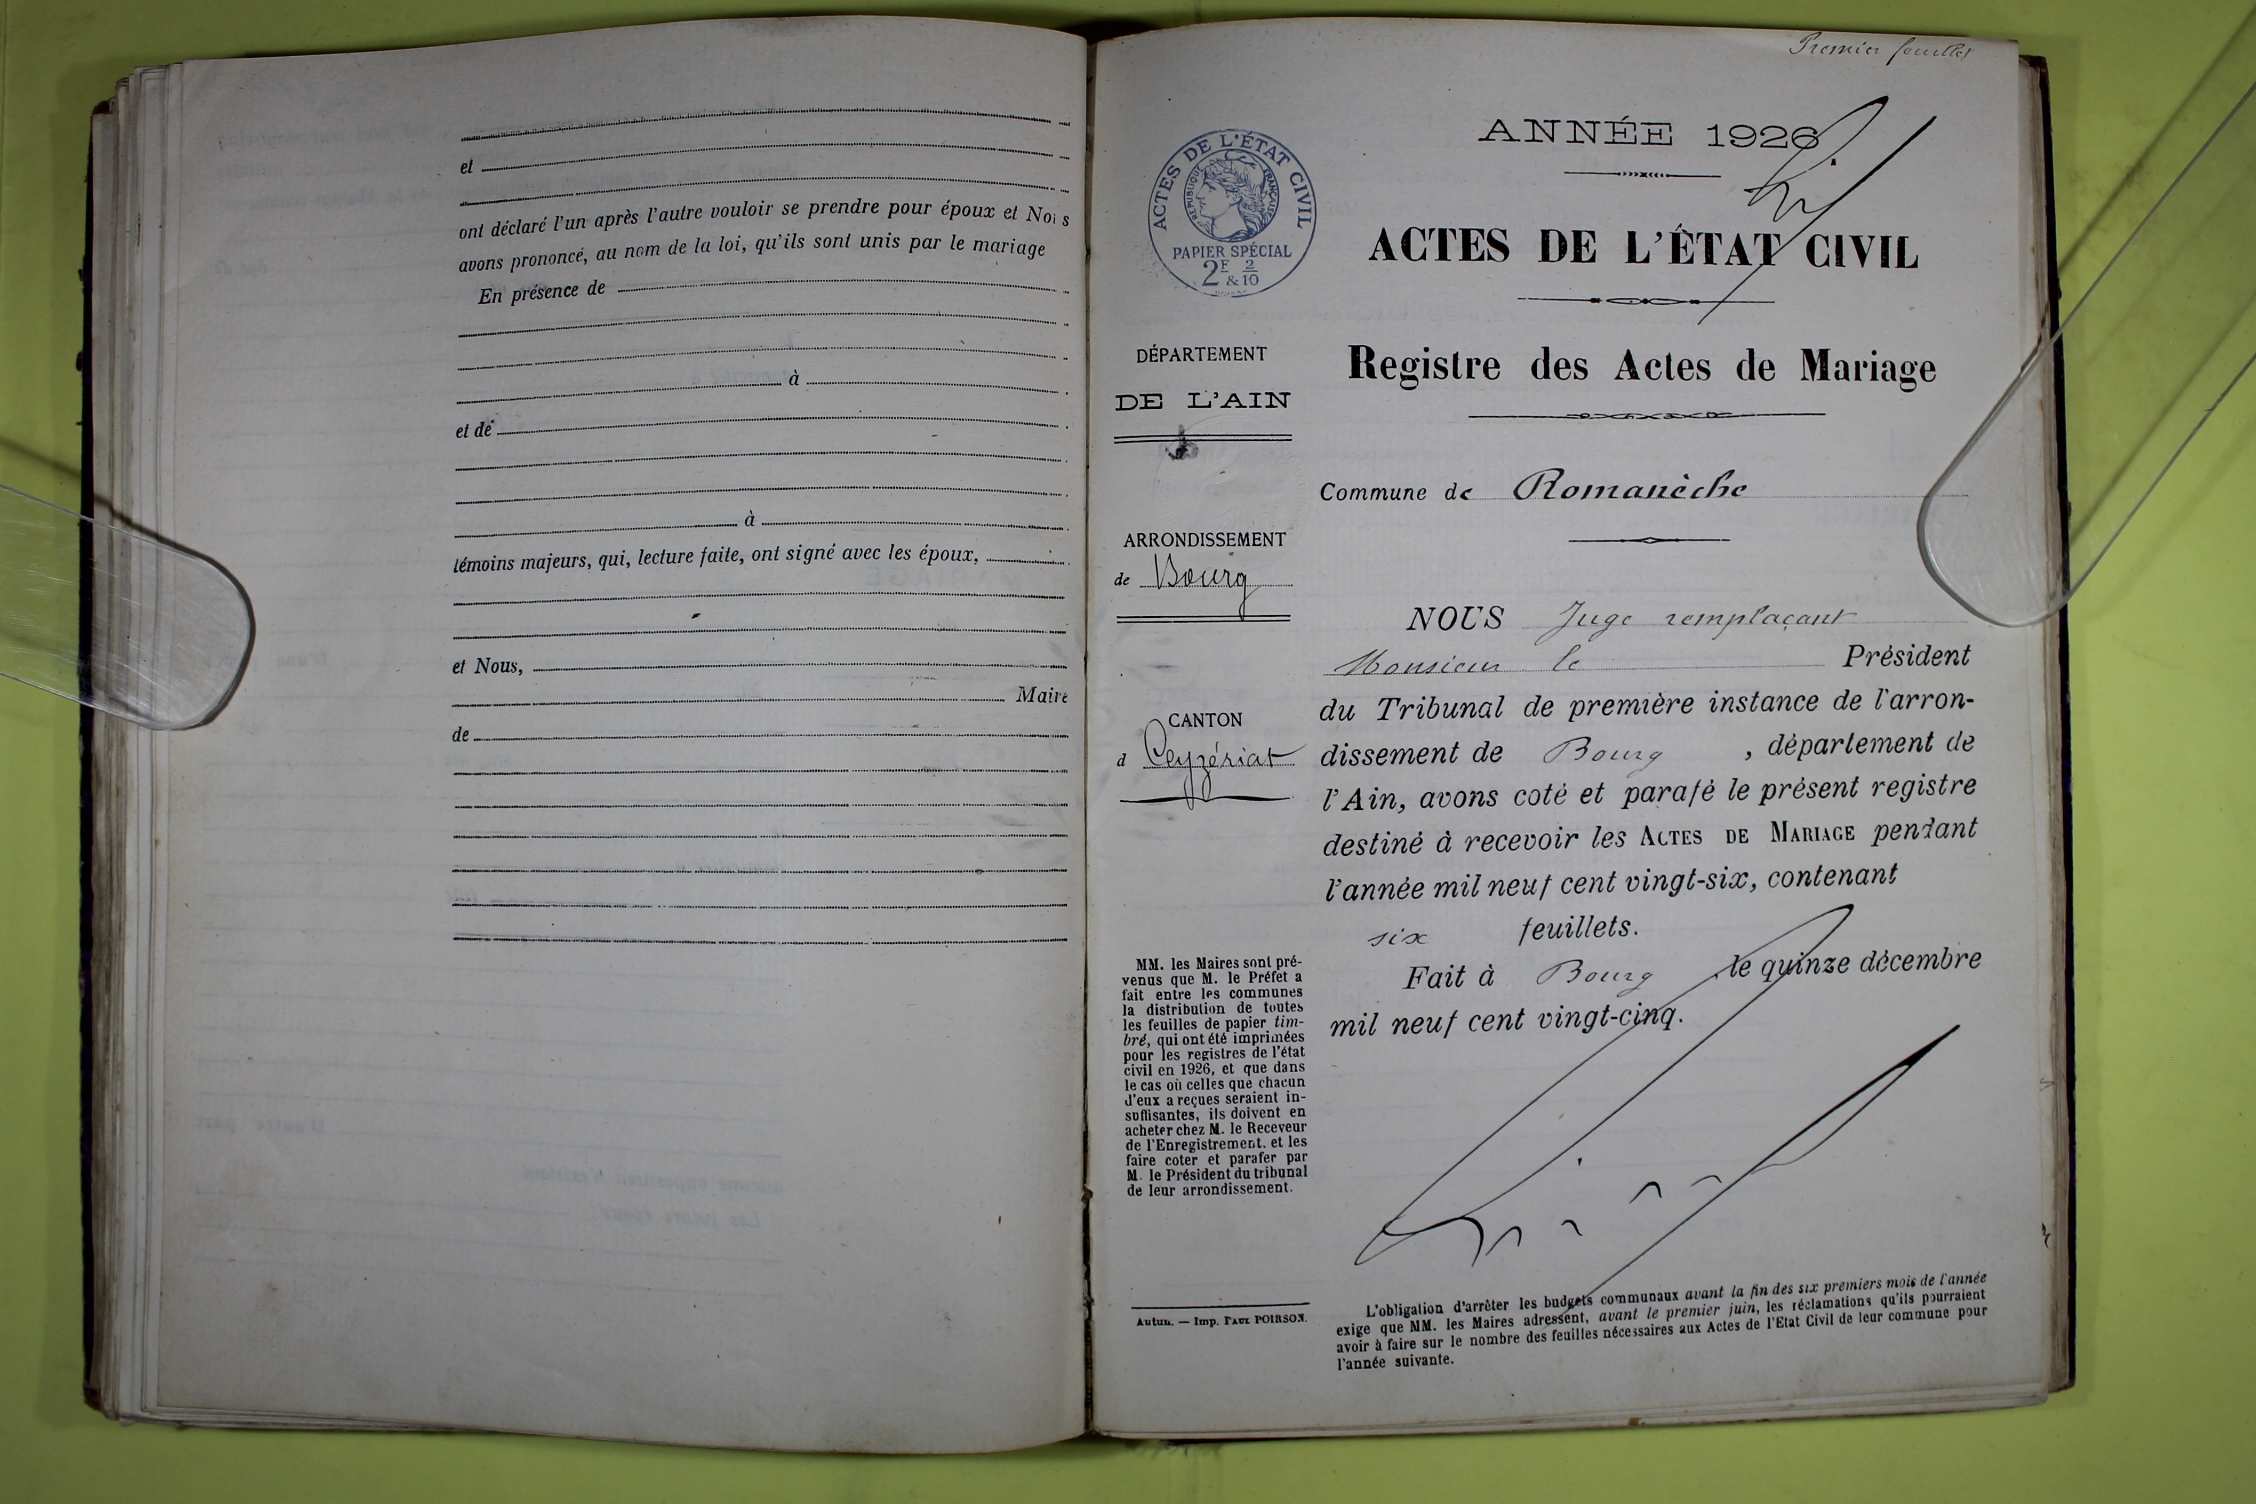 et
ont déclaré l'un après l'autre vouloir se prendre pour époux et Nous
avons prononcé, au nom de la loi, qu'ils sont unis par le mariage
En présence de
à
et de
à
témoins majeurs, qui, lecture faite, ont signé avec les époux,
et Nous,
Maire
de
Premier feuillet
ANNÉE 1926
ACTES DE L'ÉTAT CIVIL
RÉPUBLIQUE FRANÇAISE
PAPIER SPÉCIAL
2F & 2/10
ACTES DE L'ÉTAT CIVIL
Registre des Actes de Mariage
DÉPARTEMENT
DE L'AIN
Commune de Romanèche
ARRONDISSEMENT
de Bourg
CANTON
d Ceyzériat
NOUS Juge remplaçant
Monsieur le Président
du Tribunal de première instance de l'arron-
dissement de Bourg, département de
l'Ain, avons coté et parafé le présent registre
destiné à recevoir les ACTES DE MARIAGE pendant
l'année mil neuf cent vingt-six, contenant
six feuillets.
Fait à Bourg, le quinze décembre
mil neuf cent vingt-cinq.
MM. les Maires sont pré-
venus que M. le Préfet a
fait entre les communes
la distribution de toutes
les feuilles de papier tim-
bré, qui ont été imprimées
pour les registres de l'état
civil en 1926, et que dans
le cas où celles que chacun
d'eux a reçues seraient in-
suffisantes, ils doivent en
acheter chez M. le Receveur
de l'Enregistrement, et les
faire coter et parafer par
M. le Président du tribunal
de leur arrondissement.
Autun. — Imp. PAUL POIRSON.
L'obligation d'arrêter les budgets communaux avant la fin des six premiers mois de l'année
exige que MM. les Maires adressent, avant le premier juin, les réclamations qu'ils pourraient
avoir à faire sur le nombre des feuilles nécessaires aux Actes de l'Etat Civil de leur commune pour
l'année suivante.